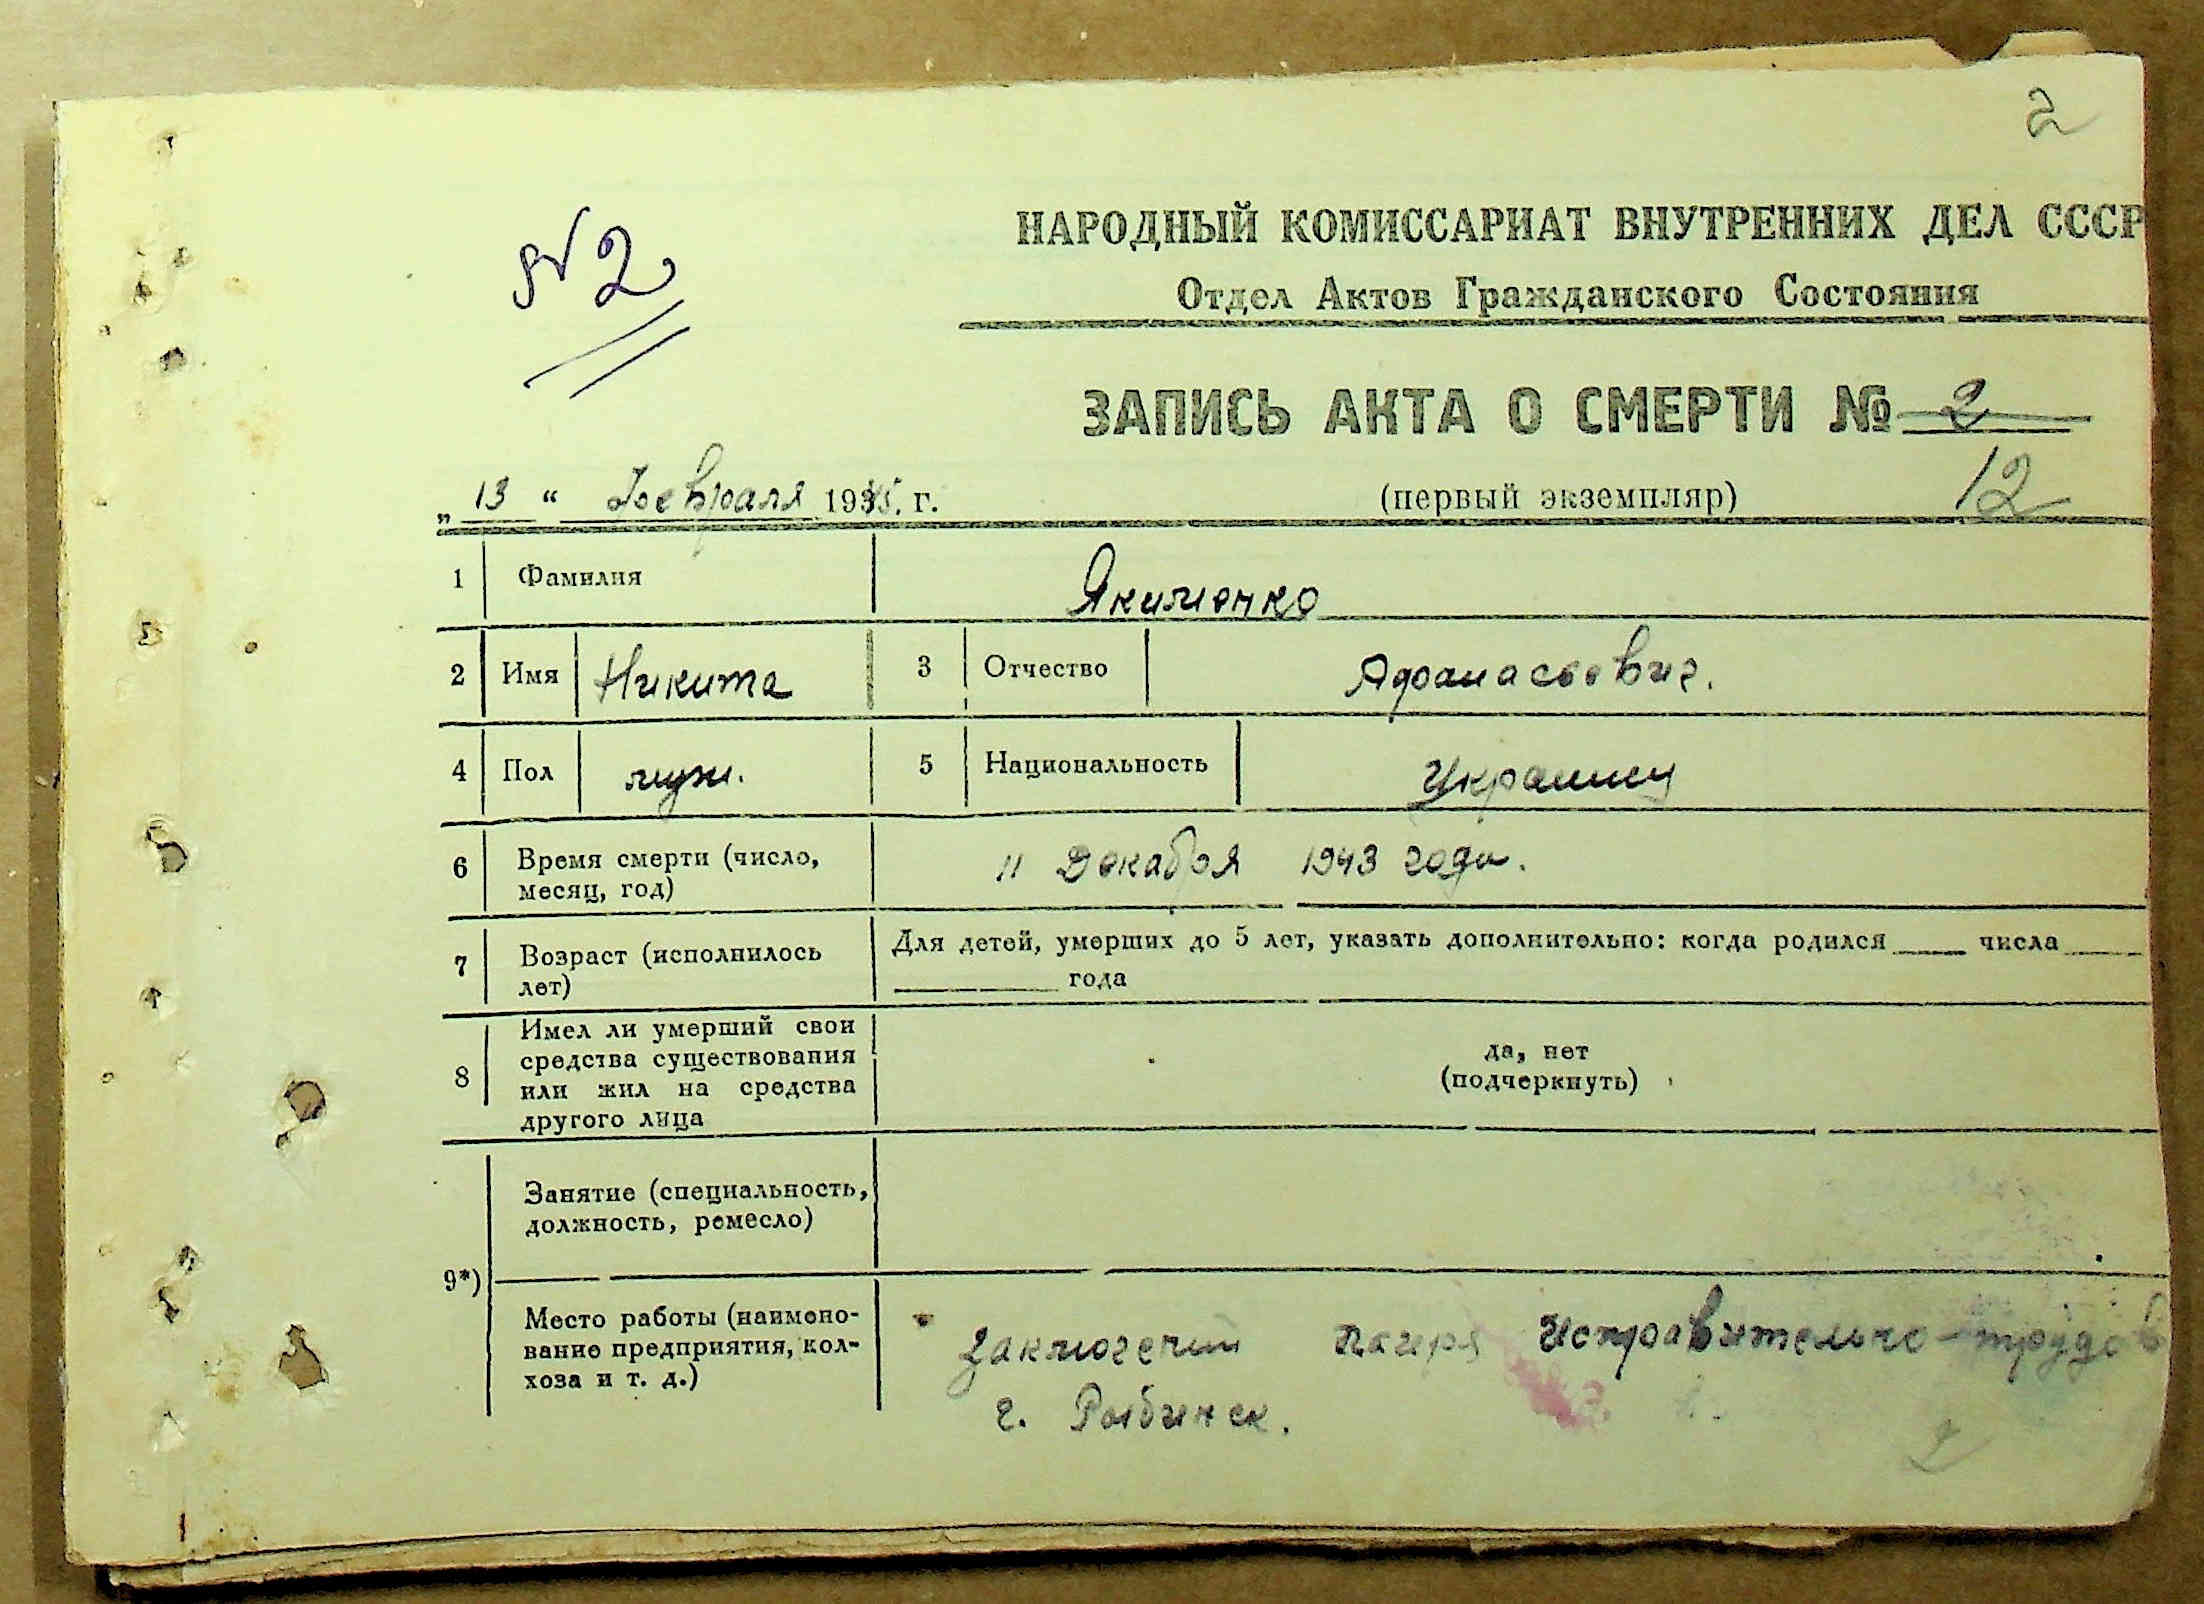 2
НАРОДНЫЙ КОМИССАРИАТ ВНУТРЕННИХ ДЕЛ СССР
№ 2
Отдел Актов Гражданского Состояния
ЗАПИСЬ АКТА О СМЕРТИ № 2
12
„ 13 “ Февраля 1945. г.
(первый экземпляр)
1 Фамилия Якименко
2 Имя Никита 3 Отчество Афанасьевич.
4 Пол муж. 5 Национальность Украинец
6 Время смерти (число, 11 Декабря 1943 года.
месяц, год)
7 Возраст (исполнилось
лет)
Для детей, умерших до 5 лет, указать дополнительно: когда родился ____ числа ____
____ года
8 Имел ли умерший свои
средства существования
или жил на средства
другого лица
да, нет
(подчеркнуть)
9*)
Занятие (специальность,
должность, ремесло)
Место работы (наимено-
вание предприятия, кол-
хоза и т. д.)
Заключеный лагеря Исправительно-трудов
г. Рыбинск.
2